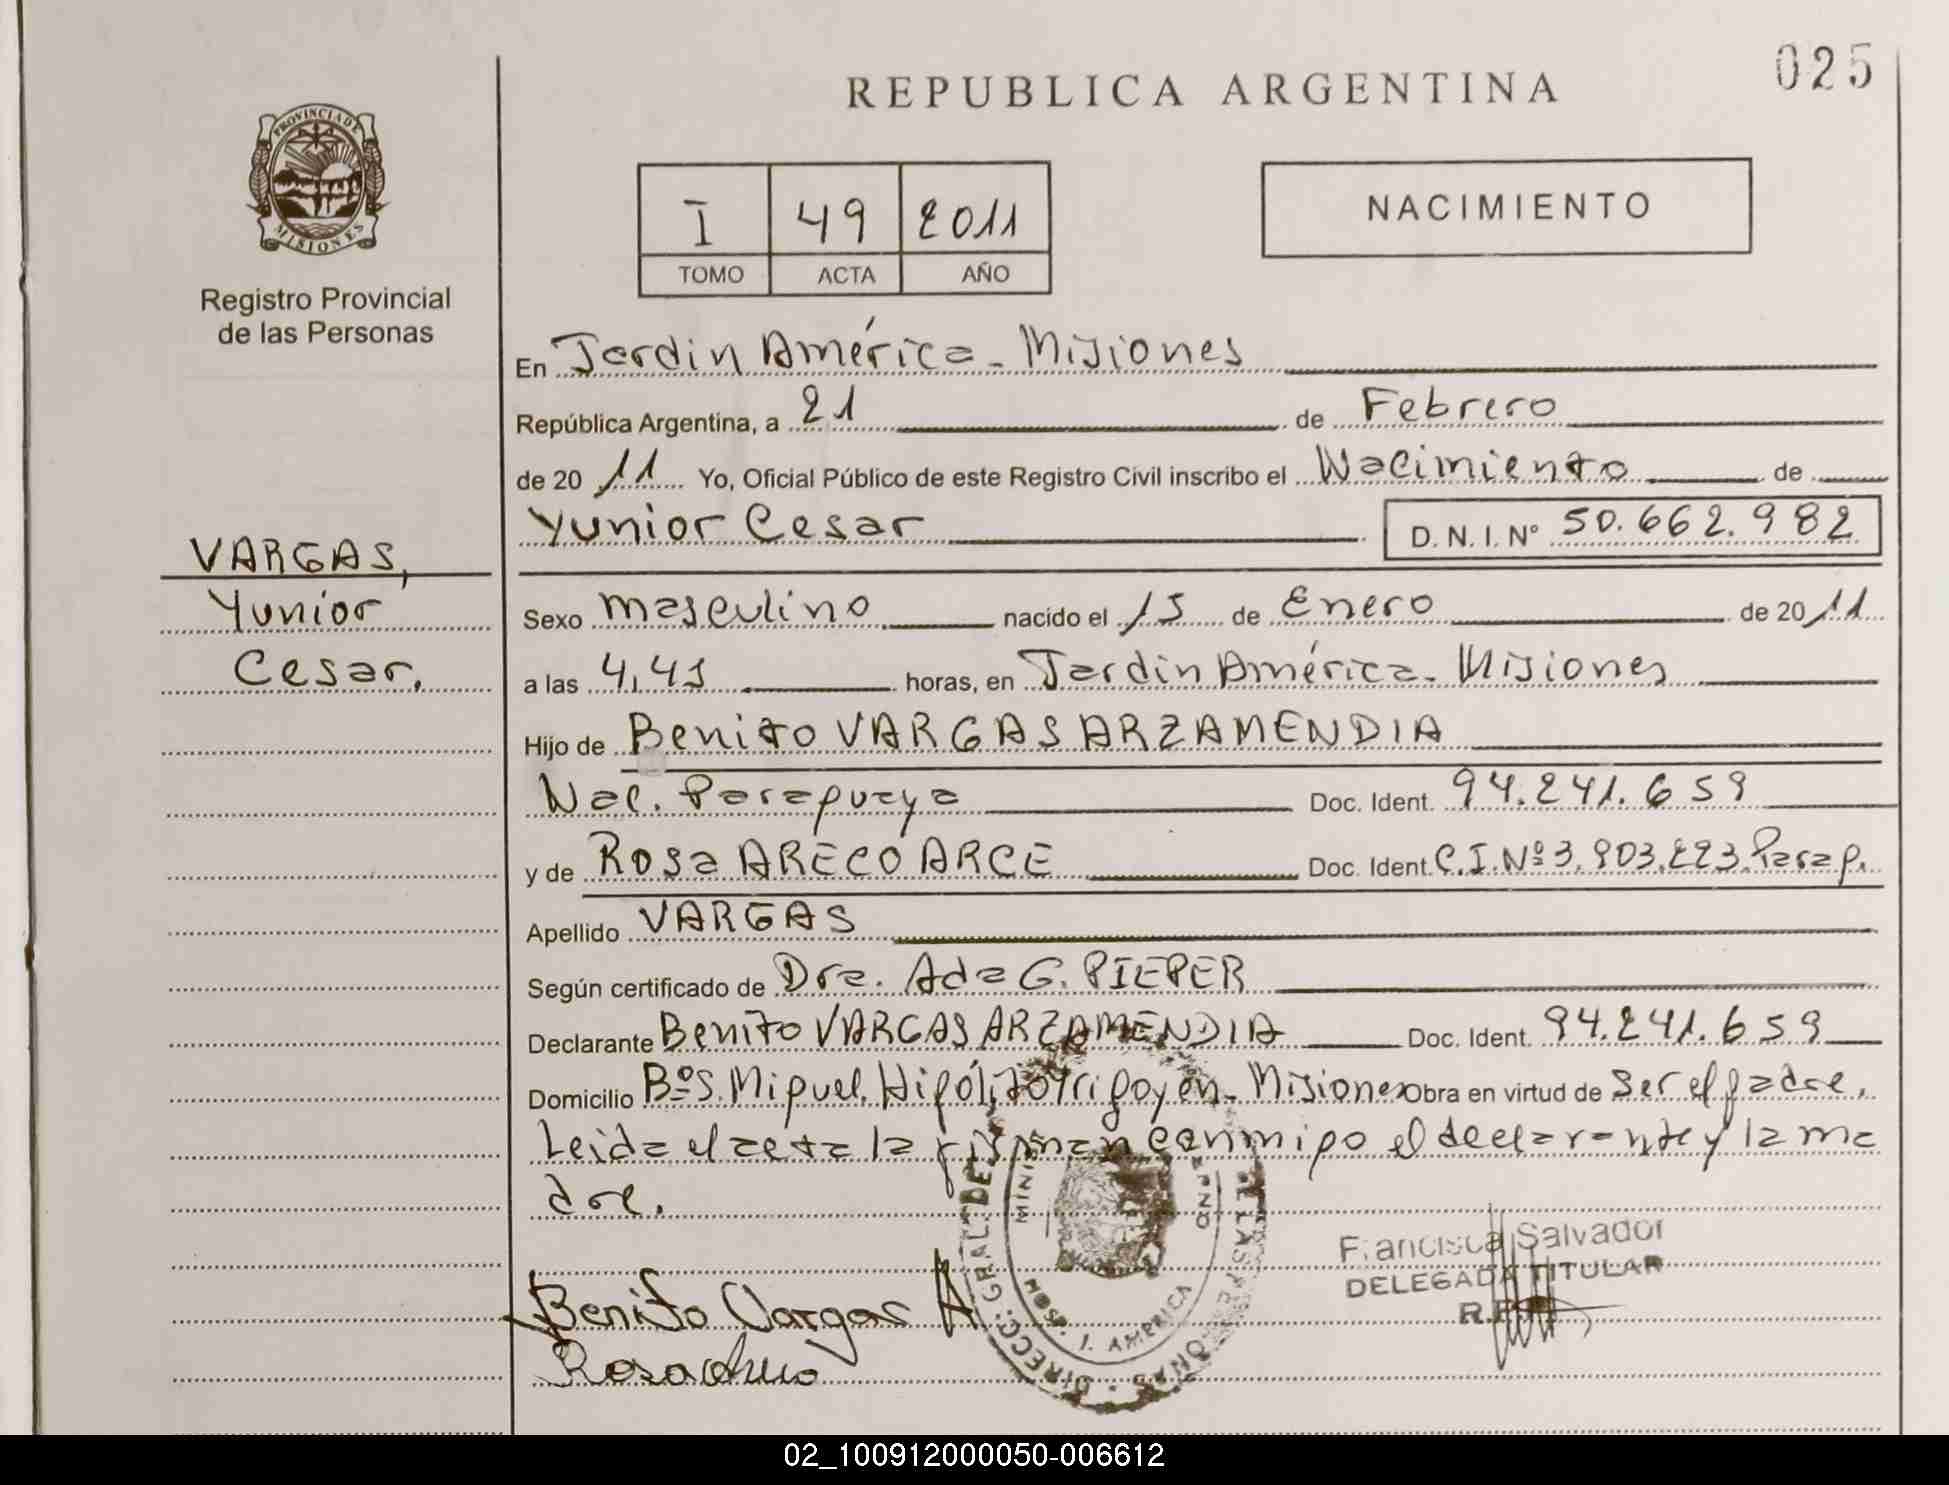 025
REPUBLICA ARGENTINA
PROVINCIA DE
MISIONES
Registro Provincial
de las Personas
I 49 2011
TOMO ACTA AÑO
NACIMIENTO
En Jardín América - Misiones
República Argentina, a 21 de Febrero
de 20 11 Yo, Oficial Público de este Registro Civil inscribo el Nacimiento de
Yunior Cesar D. N. I. N° 50.662.982
VARGAS,
Yunior
Cesar.
Sexo masculino nacido el 15 de Enero de 20 11
a las 4,45 horas, en Jardin América - Misiones
Hijo de Benito VARGAS ARZAMENDIA
Nac. Paraguaya Doc. Ident. 94.241.659
y de Rosa ARECO ARCE Doc. Ident. C.I.Nº 3.903.223.Parag.
Apellido VARGAS
Según certificado de Dra. Ada G. PIEPER
Declarante Benito VARGAS ARZAMENDIA Doc. Ident. 94.241.659
Domicilio BºS. Miguel. Hipólito Yrigoyen - Misiones Obra en virtud de ser el padre.
Leida el acta la firman conmigo el declarante y la ma
dre.
Benito Vargas A
Rosa
DIRECC. GRAL. DE LAS PERSONAS
J. AMERICA
Francisca Salvador
DELEGADA TITULAR
02_100912000050-006612